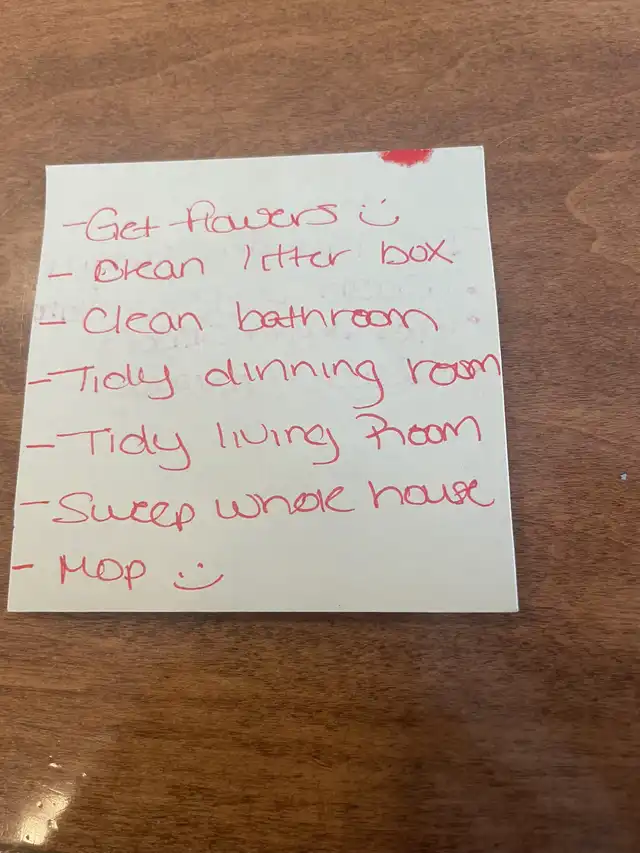 - Get flowers :)
- Clean litter box
- Clean bathroom
- Tidy dinning room
- Tidy living Room
- Sweep whole house
- Mop :)